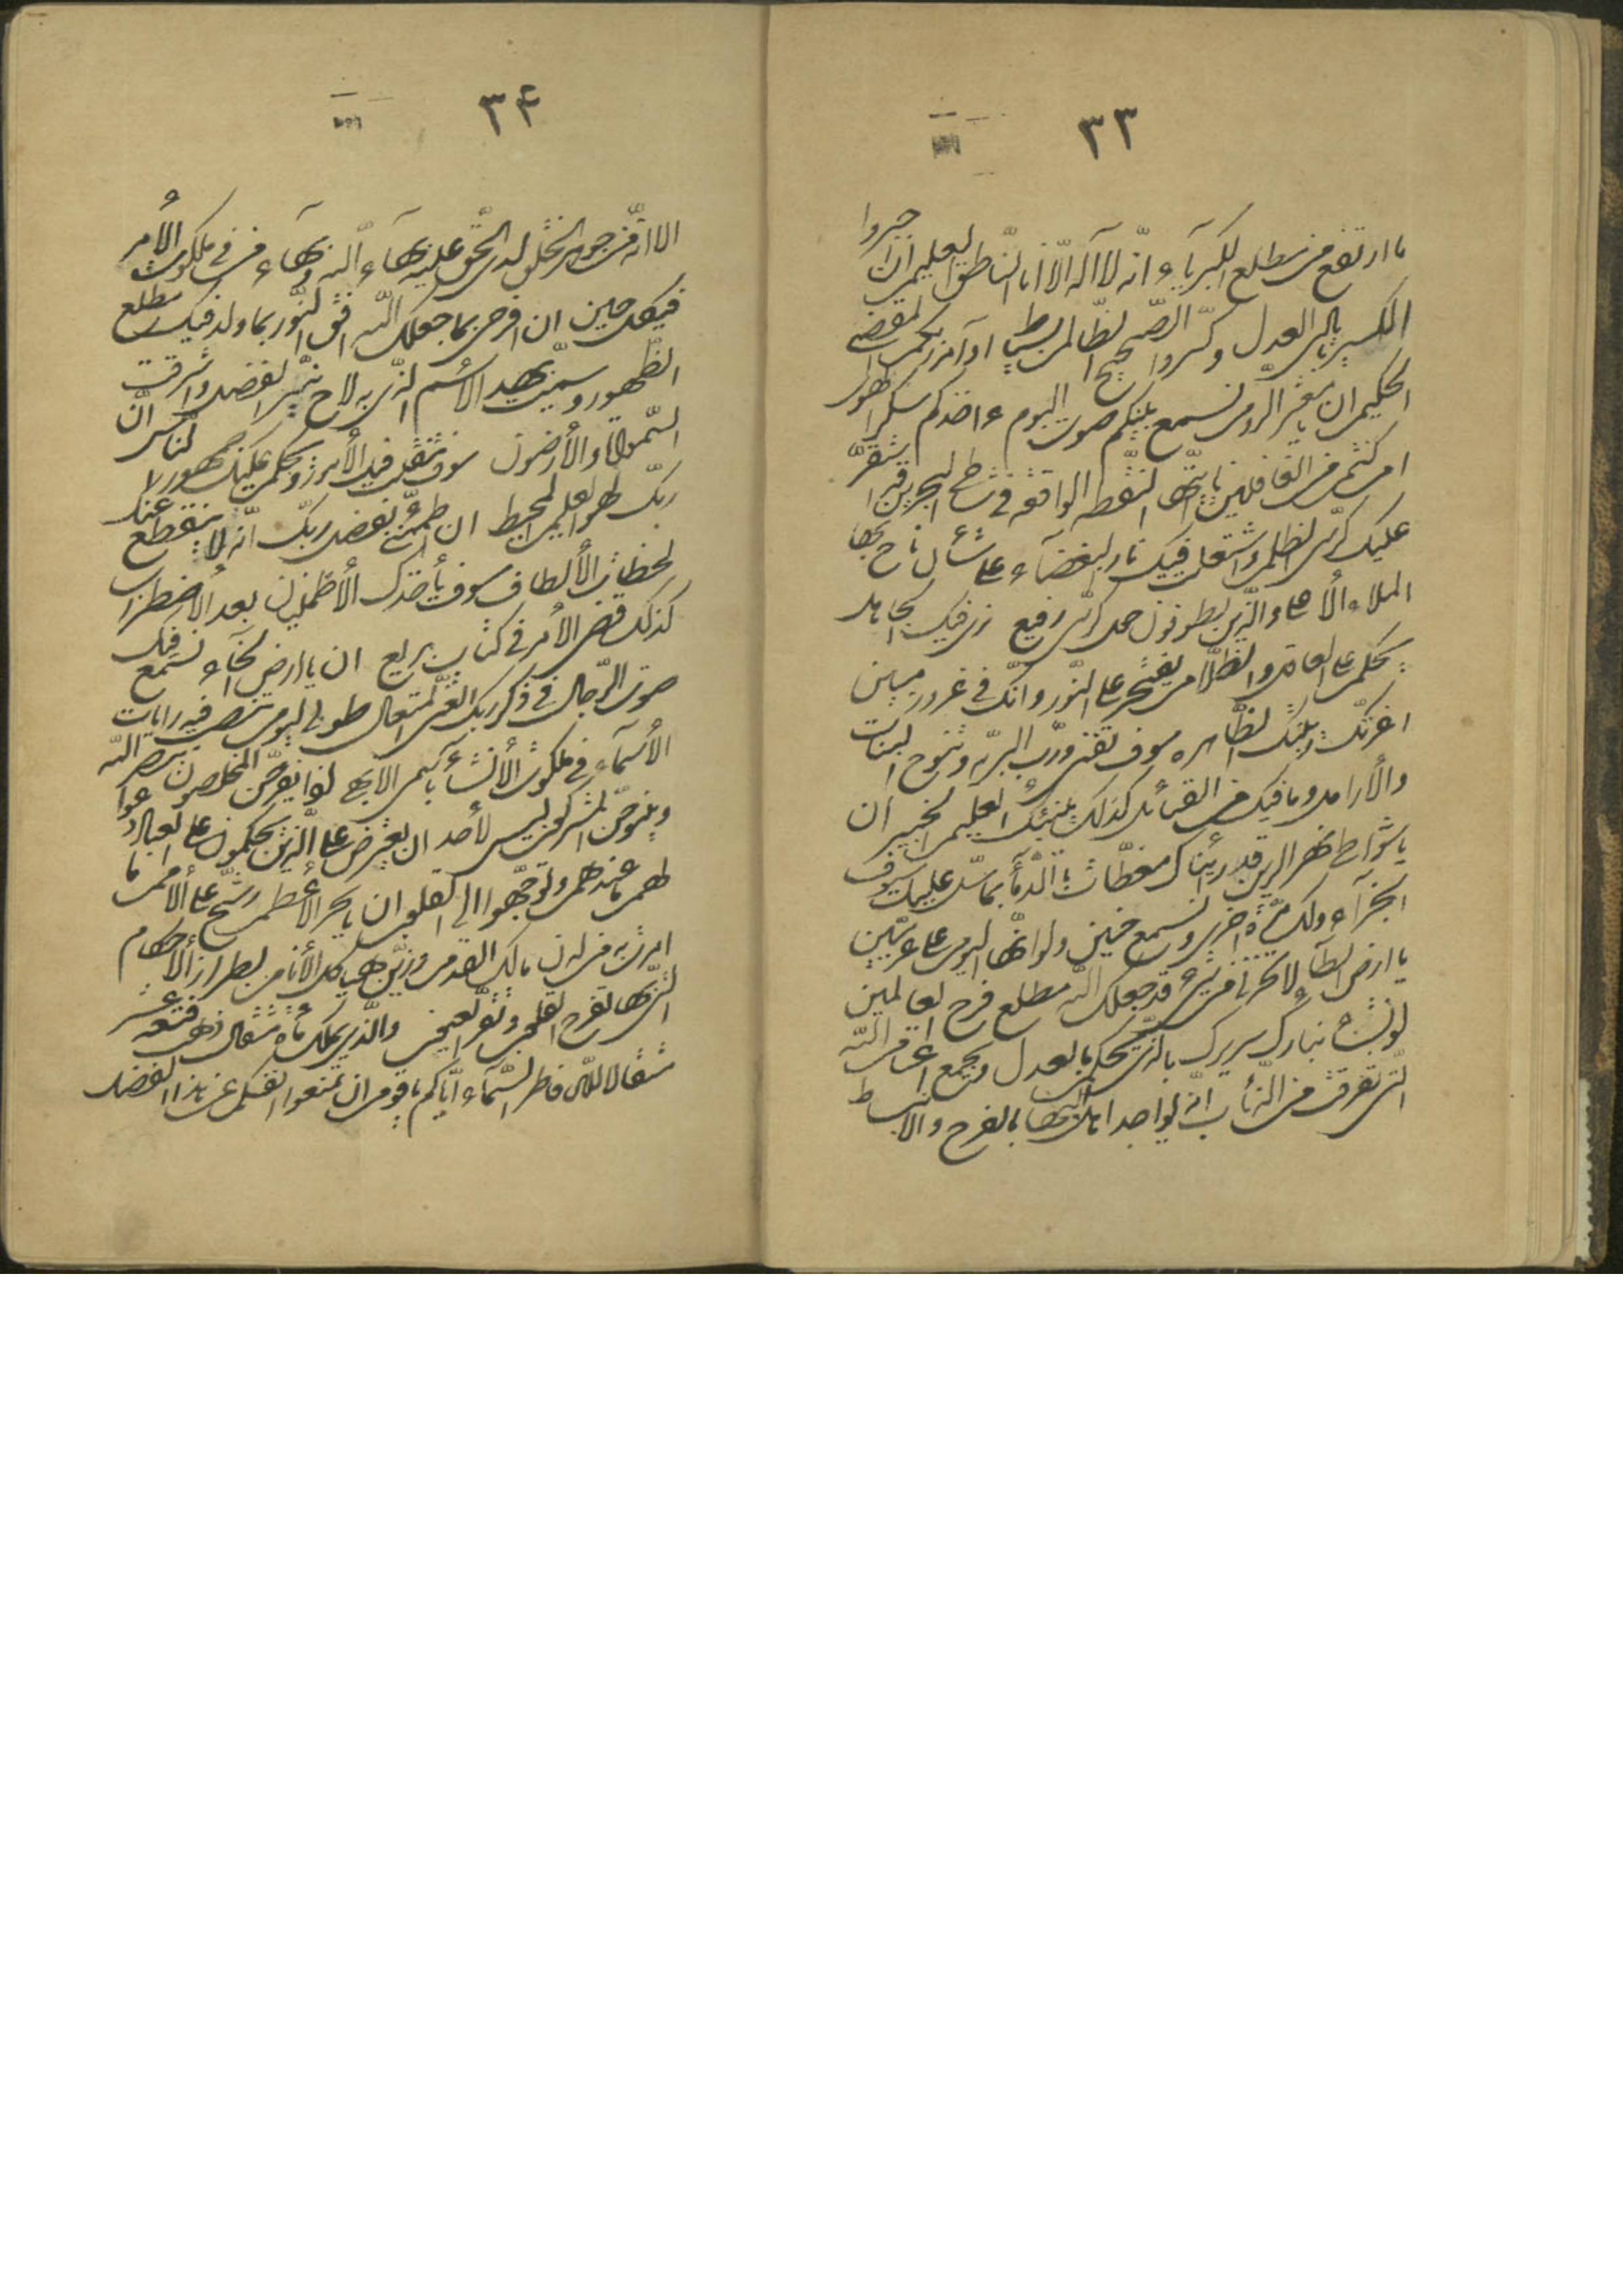 ٣٣
ما ارتفع من مطلع الكبريآء انّه لا اله الّا انا النّاطق العليم ان اجبروا
الكسير بايادى العدل وكسّروا الصّحيح الظّالم بسياط اوآمر ربّكم المقتدر
الحكيم ان يا معشر الرّوم نسمع بينكم صوت البوم ءاخذكم سكر الهوى
ام كنتم من الغافلين يا ايّتها النّقطه الواقعه فى شاطى البحرين قد استقرّ
عليك كرسىّ الظّلم واشتعلت فيك نار البغضآء على شأن ناح بها
الملاء الأعلى والّذين يطوفون حول كرسىّ رفيع نرى فيك الجاهل
يحكم على العاقل والظّلام يفتخر على النّور وانّك فى غرور مبين
اغرّتك زينتك الظّاهره سوف تفنى وربّ البريّه وتنوح البنات
والأرامل وما فيك من القبائل كذلك ينبّئك العليم الخبير ان
يا شواطى نهر الرين قد رأيناك مغطّاة بالدّمآء بما سلّ عليك سيوف
الجزآء ولك مرّة اخرى ونسمع حنين البرلين ولو انّها اليوم على عزّ مبين
يا ارض الطّآء لا تحزنى من شئ قد جعلك اللّه مطلع فرح العالمين
لو يشآء يبارك سريرك بالّذى يحكم بالعدل ويجمع اغنام اللّه
الّتى تفرّقت من الذّئاب انّه يواجه اهل البهآء بالفرح والانبساط
٣٤
الا انّه من جوهر الخلق لدى الحقّ عليه بهآء اللّه وبهآء من فى ملكوت الأمر
فى كلّ حين ان افرحى بما جعلك اللّه افق النّور بما ولد فيك مطلع
الظّهور وسمّيت بهذا الاسم الّذى به لاح نيّر الفضل واشرقت
السّموات والأرضون سوف تنقلب فيك الأمور ويحكم عليك جمهور النّاس انّ
ربّك لهو العليم المحيط ان اطمئنّى بفضل ربّك انّه لا تنقطع عنك
لحظات الألطاف سوف يأخذك الأطمينان بعد الأضطراب
كذلك قضى الأمر فى كتاب بديع ان يا ارض الخآء نسمع فيك
صوت الرّجال فى ذكر ربّك الغنىّ المتعال طوبى ليوم تنصب فيه رايات
الأسمآء فى ملكوت الأنشآء باسمى الابهى يومئذ يفرح المخلصون بنصر اللّه
وينوح المشركون ليس لأحد ان يعترض على الّذين يحكمون على العباد دعوا
لهم ما عندهم وتوجّهوا الى القلوب ان يا بحر الأعظم رشّ على الأمم ما
امرت به من لدن مالك القدم وزيّن هياكل الأنام بطراز الأحكام
الّتى بها تفرح القلوب وتقرّ العيون والّذى تملّك مأة مثقال ذهب فتسعة عشر
مثقالا للّه فاطر السّمآء ايّاكم يا قوم ان تمنعوا انفسكم عن هذا الفضل